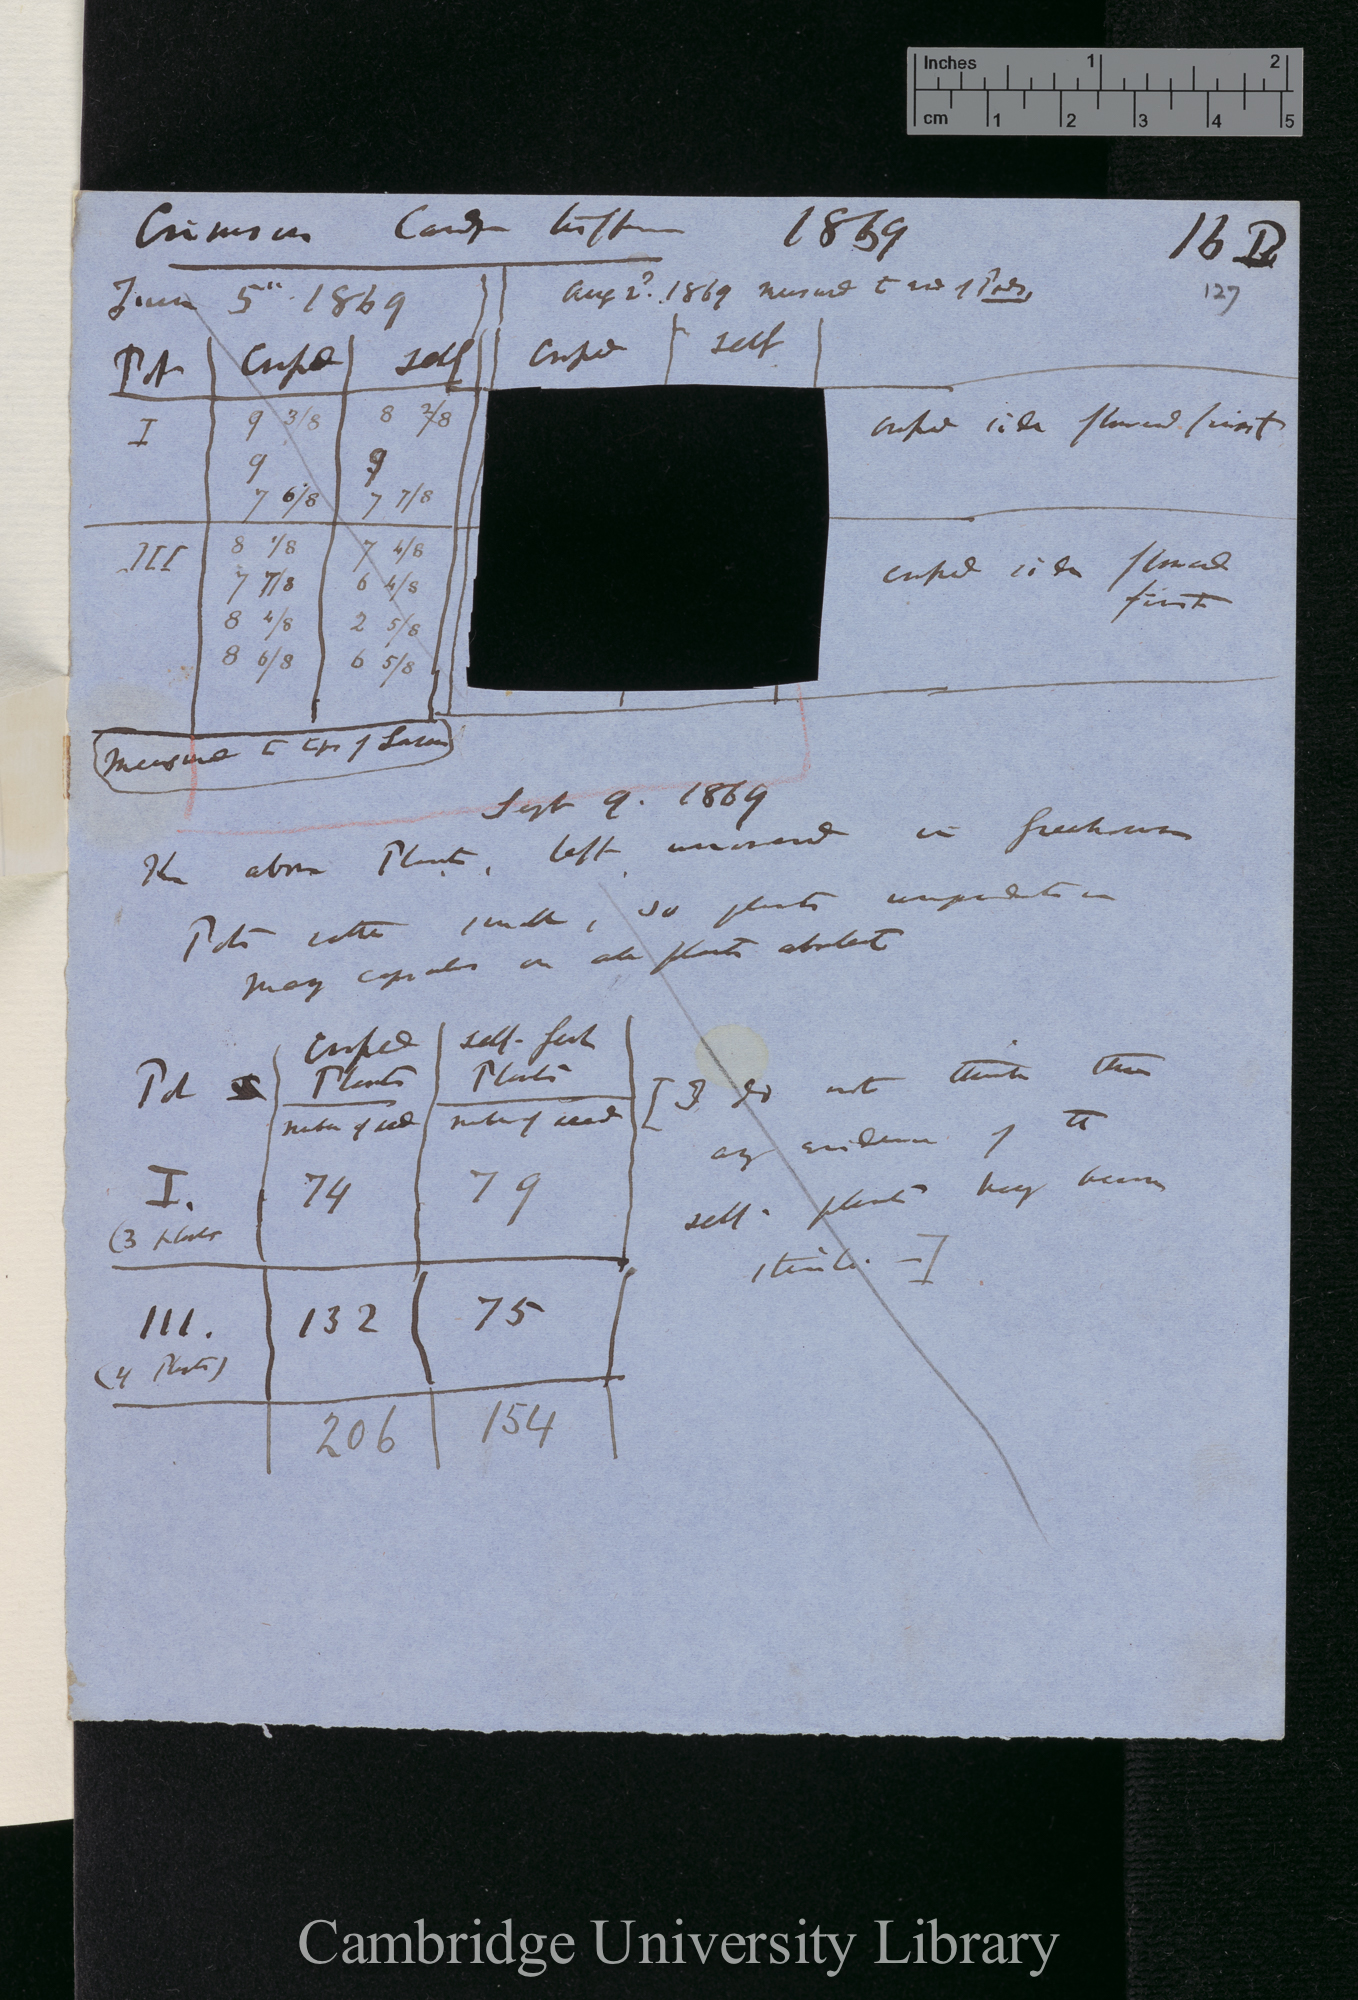 Inches 1 2
cm 1 2 3 4 5
Crimson Candytuft 1869 16 B
127
June 5th 1869
Aug 2d. 1869 measured to end of Pods,
Pot Crossed Self Crossed Self
I 9 3/8 8 2/8
9 9
7 6/8 7 7/8
crossed side flowered first
III 8 1/8 7 4/8
7 7/8 6 4/8
8 4/8 2 5/8
8 6/8 6 5/8
crossed side flowered
first
Measured to tips of Leaves
Sept 9. 1869
The above Plants, left uncovered in Greenhouse
Pots rather small, so plants unproductive
many capsules on all plants abortest
Pot Crossed Plants self-fert Plants
number of seed number of seed
I. 74 79
(3 plants
III. 132 75
(4 Plants)
206 154
[I do not think there
any evidence of the
self-plants having been
sterile. —]
Cambridge University Library